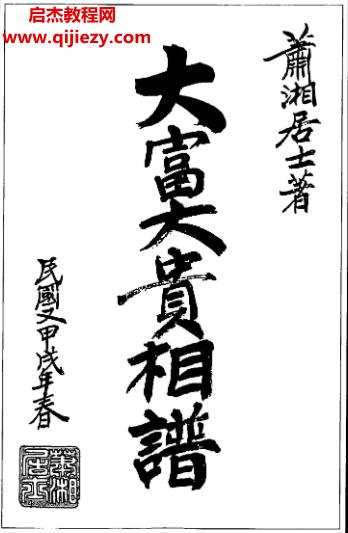 启杰教程网
www.qijiezy.com
蕭湘居士著
大富大貴相譜
民國又甲戌年春
蕭湘居士